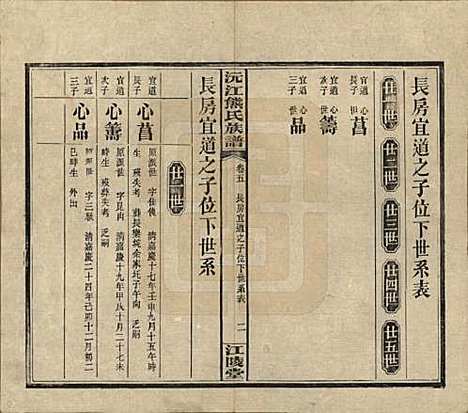 長房宜道之子位下世系表
廿一世
廿二世
廿三世
廿四世
廿五世
宜道
長子
心
世
菖
宜道
次子
心
世
籌
宜道
三子
心
世
品
沅江熊氏族譜
卷五
長房宜道之子位下世系表
二
江陵堂
長房宜道之子位下世系
宜道
長子
心菖
原派世 字仙俊 清嘉慶十七年壬申九月十五午時
生 歿失考 葬長樂垸余家坨子午向 乏嗣
宜道
次子
心籌
原派世 字見南 清嘉慶十九年甲戌十月二十七
時生 歿葬失考 乏嗣
宜道
三子
心品
原派世 字三級 清嘉慶二十四年己卯十月初二
巳時生 外出